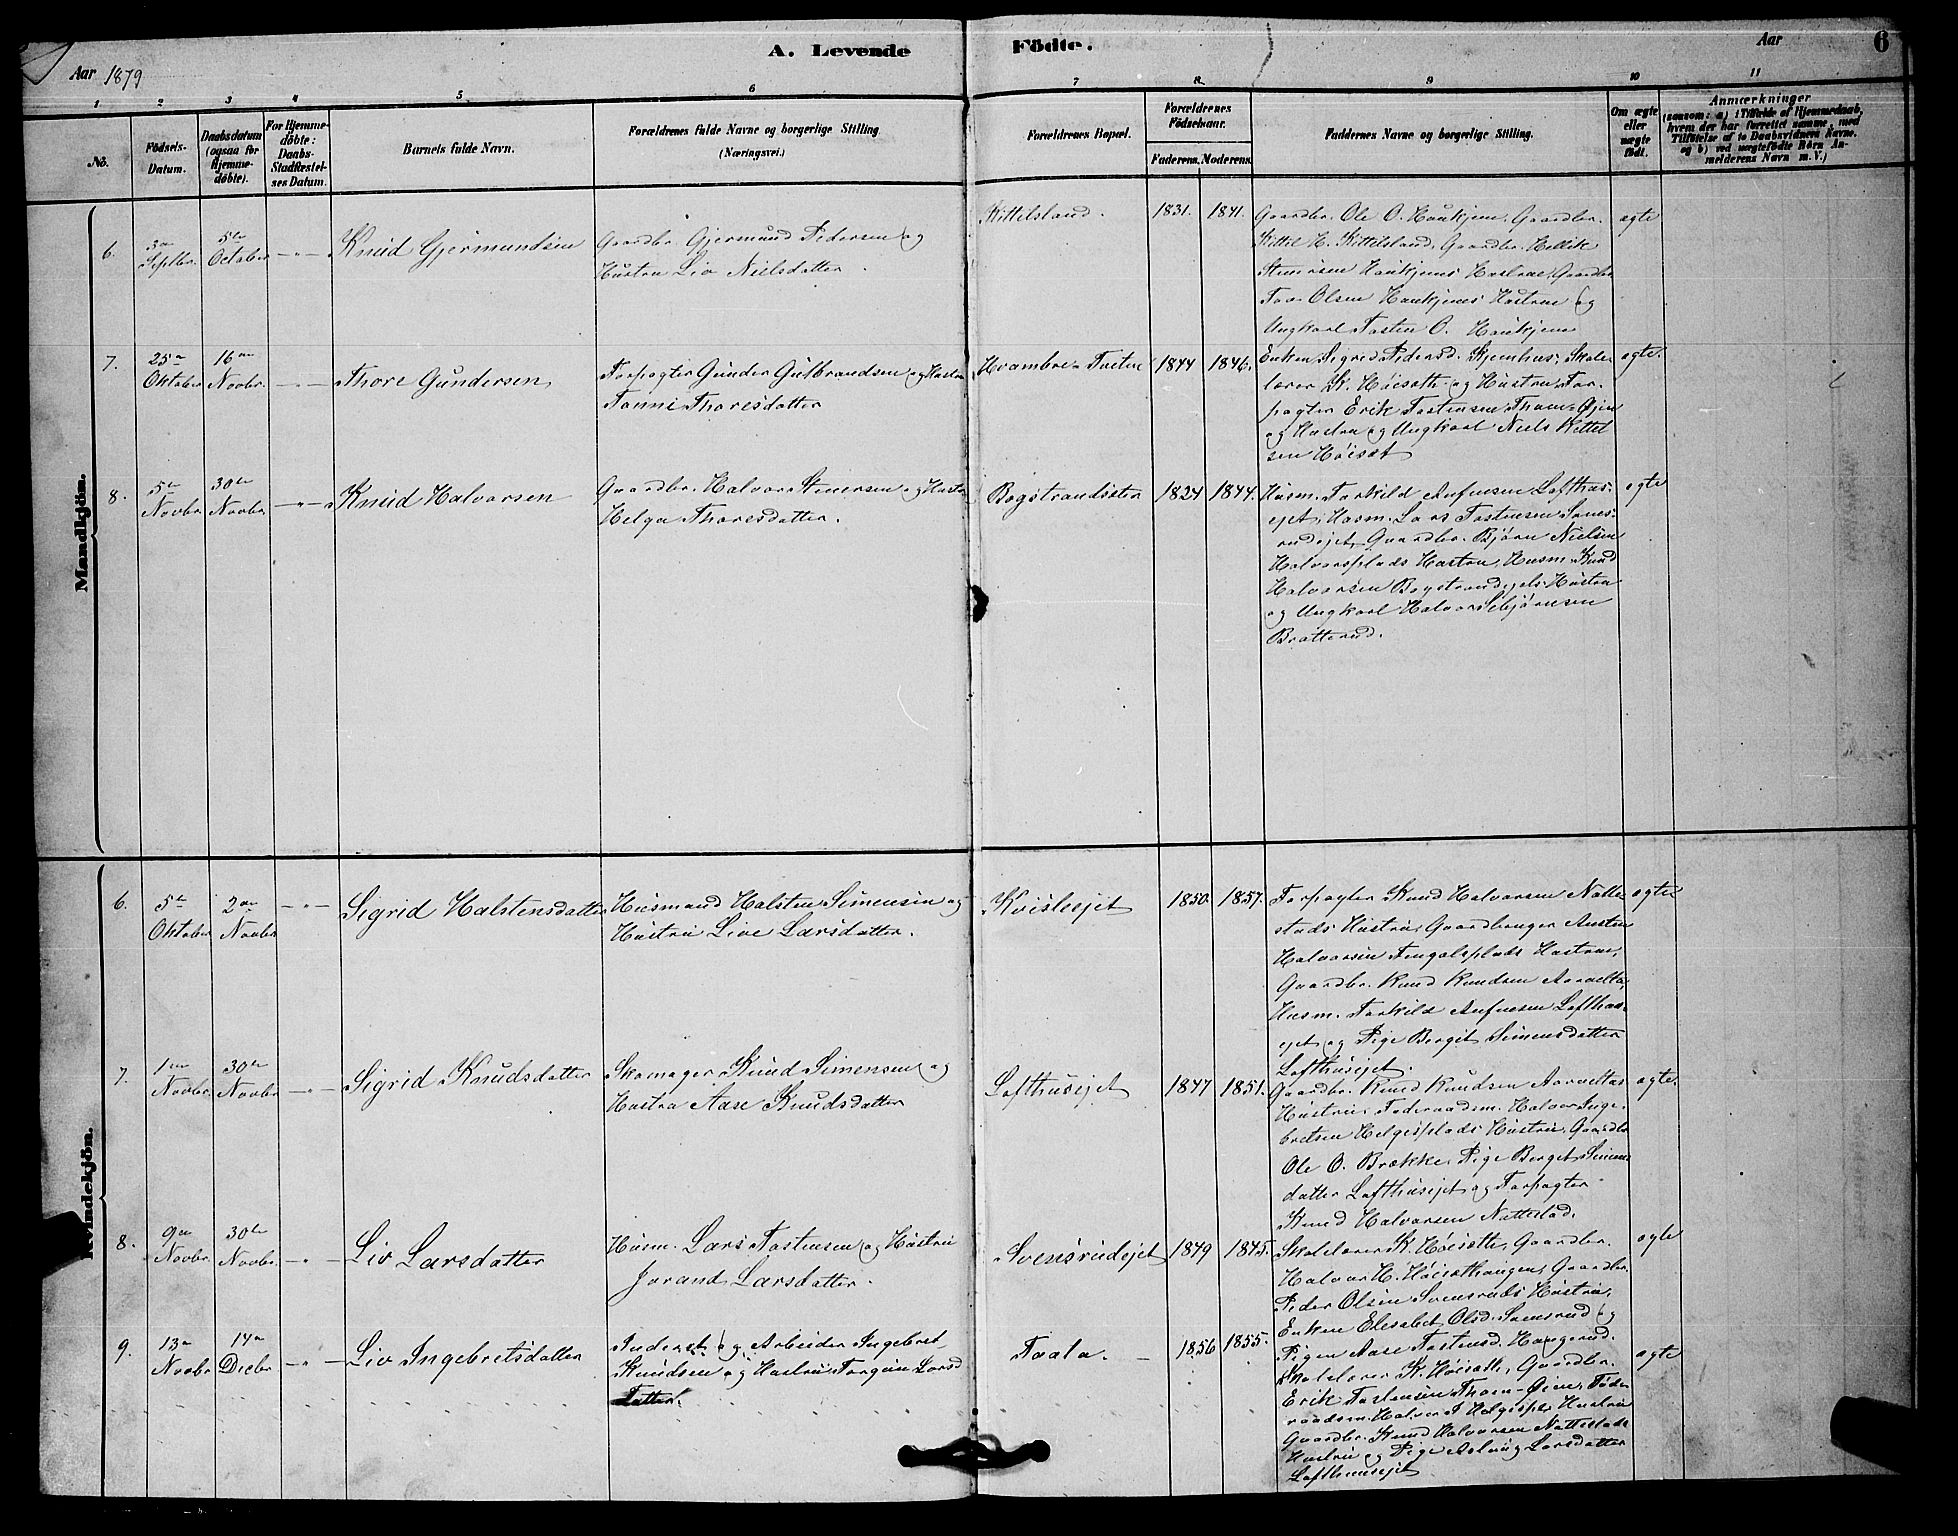 A. Levende Födte.
Aar 1879
Aar
6
1 2 3 4 5 6 7 8 9 10 11
No.
Födsels-Datum.
Daabsdatum (ogsaa for Hjemme-döbte).
For Hjemme-döbte: Daabs-Stadfæstel-ses Datum.
Barnets fulde Navn.
Forældrenes fulde Navne og borgerlige Stilling
(Næringsvei.)
Forældrenes Bopæl.
Forældrenes Födselsaar.
Faderens. Moderens.
Faddernes Navne og borgerlige Stilling.
Om ægte eller uægte födt.
Anmærkninger
(saasom: a) i Tilfælde af Hjemmedaab, hvem der har forrettet samme, med Tilföielse af to Daabsvidners Navne. og b) ved uægtefödte Börn An-melderens Navn m. V.)
Mandkjön.
6.
3die Septbr.
5te October
Knud Gjermundsen
Gaardbr. Gjermund Pedersen og
Hustru Liv Nielsdatter.
Kittelsland.
1831. 1841.
Gaardbr. Ole O. Haukjem, Gaardbr.
Kittil H. Kittilsland, Gaardbr. Hellik
Stenersen Haukjems Hustrue, Gaardbr
Tov Olsen Haukjems Hustrue og
Ungkarl Tosten O. Haukjem
ægte
7.
25de Oktober
16de Novbr.
Thore Gundersen
Forpagter Gunder Gulbrandsen og Hustru
Tonni Thoresdatter
Hvambre-Tveten
1844 1846.
Enken Sigrid Pedersd. Skjenhus, Skole
lærer K. Höisæth og Hustru, For-
pagter Erik Tostensen Thom-Öjen
og Hustru og Ungkarl Niels Kittel
sen Höisæt
ægte.
8.
5te Novbr.
30te Novbr.
Knud Halvorsen
Gaardbr. Halvor Stenersen og Hustru
Helga Thoresdatter.
Bogstrandsster
1824 1844.
Husm. Torkild Anfinsen Lofthus-
ejet, Husm. Lars Tostensen Svens-
rudejet, Gaardbr. Björn Nielsen
Halvorsplads Hustru, Husm. Knud
Halvorsen Bogstrandejets Hustru
og Ungkarl Halvor Sebjörnsen
Bratterud.
ægte
Kvindekjön.
6.
5te Oktober
2den Novbr
Sigrid Halstensdatter
Husmand Halsten Simensen og
Hustru Live Larsdatter.
Kvisleejet
1850. 1857.
Forpagter Knud Halvorsen Natte
stads Hustru, Gaardbruger Austen
Halvorsen Hustrue,
Gaardbr. Knud Knudsen Aarvelta,
Husm. Torkild Anfinsen Lofthus-
ejet og Pige Berget Simensdatter
Lofthusejet.
ægte
7.
1ste Novbr.
30te Novbr
Sigrid Knudsdatter
Skomager Knud Simensen og
Hustru Aase Knudsdatter
Lofthusejet
1847 1851.
Gaardbr. Knud Knudsen Aarveltas
Hustru, Föderaadsm. Halvor Inge-
bretsen Helgesplads Hustru, Gaardbr
Ole O. Brække, Pige Berget Simens
datter Lofthusejet og Forpagter
Knud Halvorsen Nattestad.
ægte.
8.
9de Novbr
30te Novbr
Liv Larsdatter
Husm. Lars Tostensen og Hustru
Jorand Larsdatter.
Svensrudejet
1849 1845.
Skolelærer K. Höisæth, Gaardbr.
Halvor H. Höisæthaugen, Gaardbr.
Peder Olsen Svensruds Hustru,
Enken Elesabet Olsd. Svensrud og
Pigen Aase Tostensd. Haugerud.
ægte
9.
13de Novbr
14de Decbr
Liv Ingebretsdatter
Inderst og Arbeider Ingebret
Knudsen og Hustru Torgun Lars
datter.
Traala.
1856 1855.
Skolelærer K. Höisæth, Gaardbr.
Erik Tostensen Thom-Öien, Föde
raadsm. Halvor I. Helgespl. Hustru
Gaardbr. Knud Halvorsen Nattestads
Hustru og Pige Aslaug Larsdatter
Lofthusejet
ægte